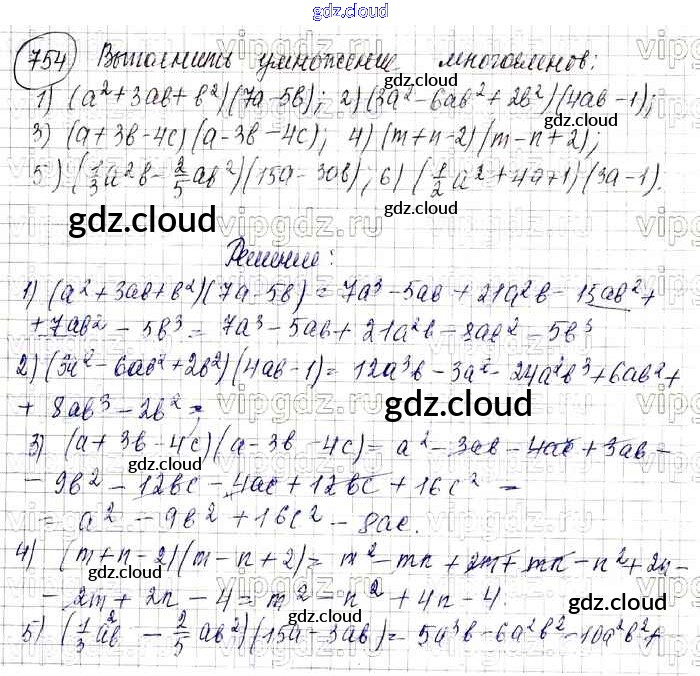 gdz.cloud
754 Выполнить умножение многочленов:
1) (a²+3ab+b²)(7a-5b); 2) (3a²-6ab²+2b²)(4ab-1);
3) (a+3b-4c)(a-3b-4c); 4) (m+n-2)(m-n+2);
5) (1/3a²b-2/5ab²)(15a-30b); 6) (1/2a²+4a+1)(3a-1).
gdz.cloud
Решение:
1) (a²+3ab+b²)(7a-5b)=7a³-5ab+21a²b-15ab²+
+7ab²-5b³=7a³-5ab+21a²b-8ab²-5b³
2) (3a²-6ab²+2b²)(4ab-1)=12a³b-3a²-24a²b³+6ab²+
+8ab³-2b²;
gdz.cloud
3) (a+3b-4c)(a-3b-4c)=a²-3ab-4ac+3ab-
-9b²-12bc-4ac+12bc+16c²=
=a²-9b²+16c²-8ac.
4) (m+n-2)(m-n+2)=m²-mn+2m+mn-n²+2n-
-2m+2n-4=m²-n²+4n-4.
5) (1/3a²b-2/5ab²)(15a-3ab)=5a³b-6a²b²-10a²b²+